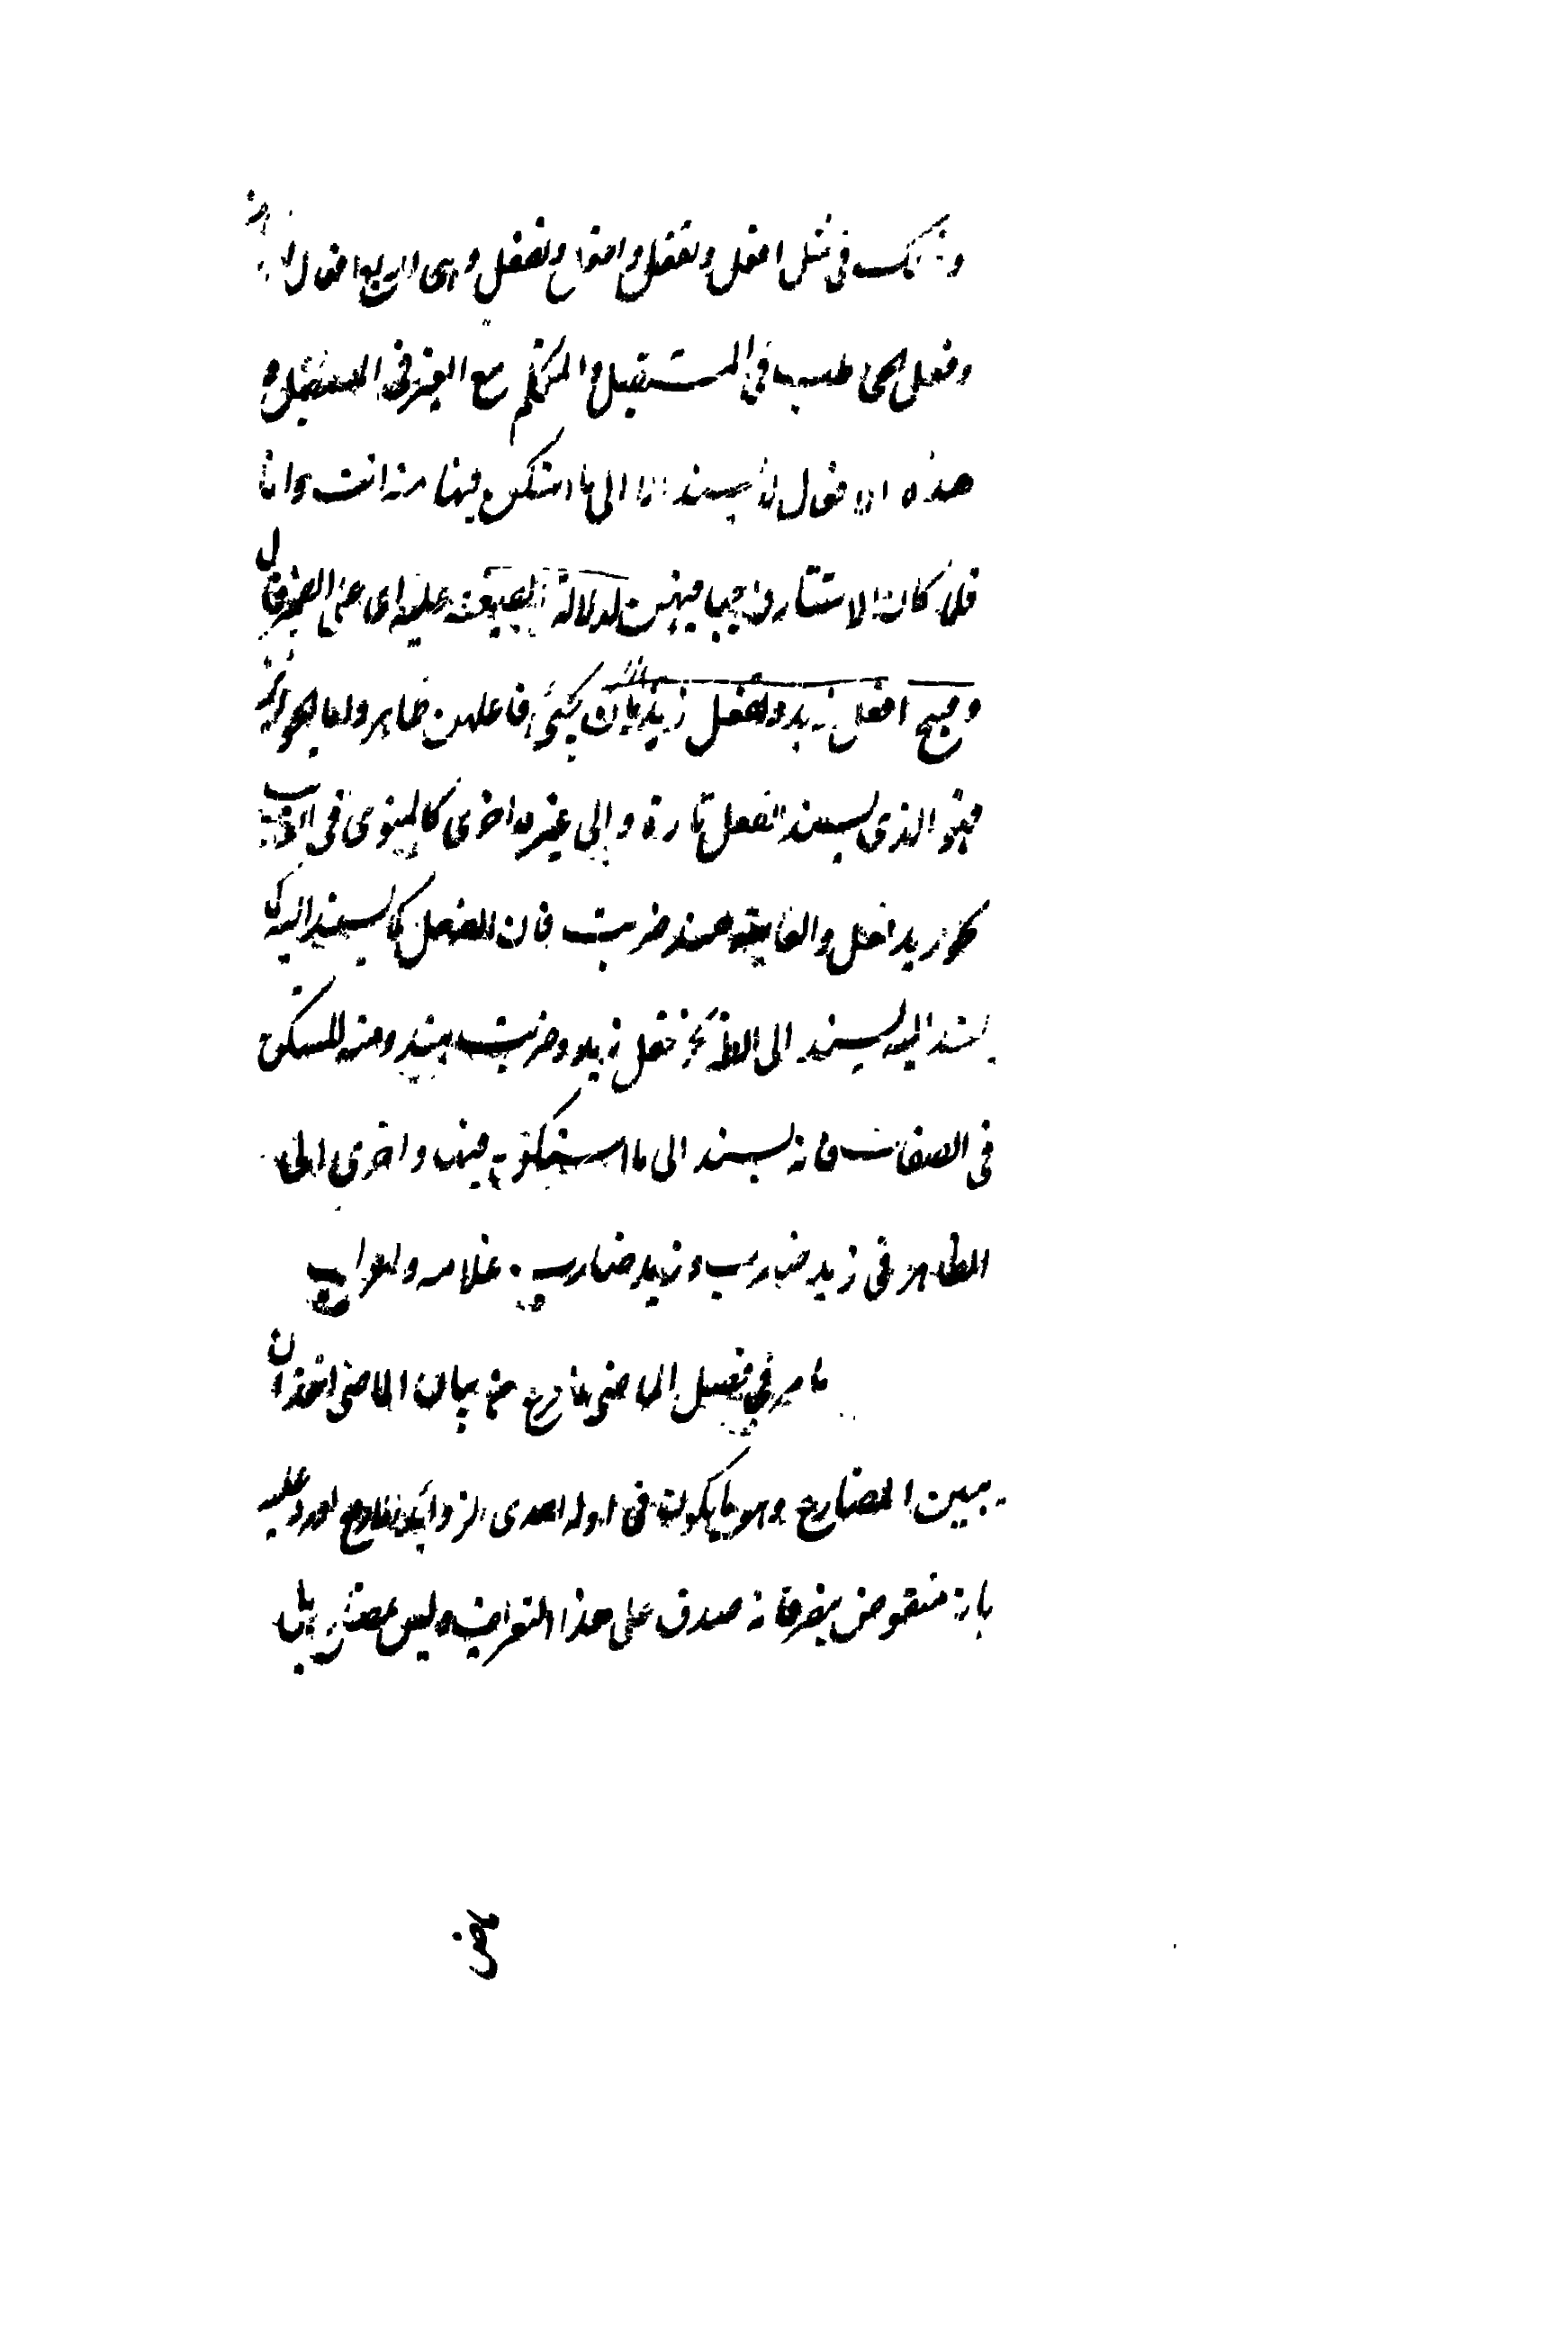 وذلك في مثل افعل وتفعل وافعل ونفعل وهي اربع افعال
وفعل المخاطب في المستقبل والمتكلم مع الغير في المستقبل و
هذه الافعال لا يسند الا الى ما استكن فيها من انت وانا
فلما كان الاستتار واجبا فيهن لدلالة الصيغة عليه اى على الضمير قال
وقبح افعل زيد وتفعل زيد بان يجيء فاعلهن ظاهرا ولما هو
فهو الذى يسند الفعل تارة والى غيره اخرى كالمنوى في الغائب
نحو زيد فعل والغايبة هند ضربت فان الفعل كما يسند اليه كما
يسند اليه يسند الى الظاهر نحو فعل زيد وضربت هند ومنه المستكن
في الصفات فانه يسند الى ما استكن فيها واخرى الى
الظاهر في زيد ضارب وزيد ضارب غلامه والجواب
ما مر في فصل الماضي فلما فرغ من بيان الماضي اخذ ان
يبين المضارع وهو ما يكون في اوله احدى الزوائد الاربع اورد عليه
بانه منقوض فانه صدق على هذا التعريف وليس بمضارع بل